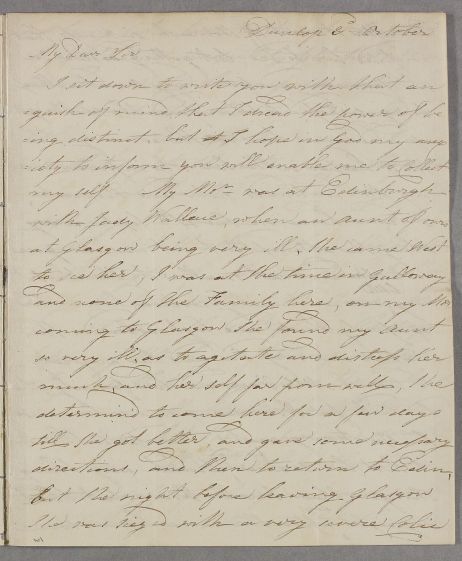 Dunlop 6th October
My Dear Sir
I sit down to write you with that an
guish of mind, that I dread the power of be
ing distinct. but I hope in God my anx
iety to inform you will enable me to collect
my self My Mor was at Edinburgh
with Lady Wallace, when an Aunt of ours
at Glasgow being very ill. She came West
to see her, I was at the time in Galloway
and none of the Family here, on my Mor
coming to Glasgow She found my Aunt
so very ill, as to agitate and distress her
much, and her self far from well, She
determind to come here for a few days
till She got better, and gave some necessary
directions, and then to return to Edin,
but the night before leaving Glasgow
She was siezed with a very severe Colic